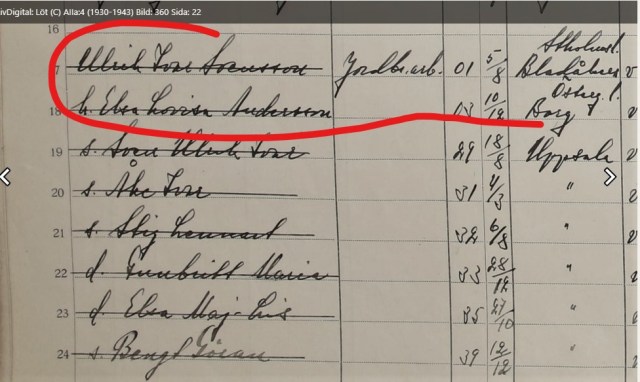 ivDigital: Löt (C) AIIa:4 (1930-1943) Bild: 360 Sida: 22
16
Stholmsl.
17 Ulrich Tore Svensson Jordbr.arb. 01 5/8
Österg. l.
18 h. Elsa Lovisa Andersson 03 10/12 Borg
19 s. Sven Ulrich Tore 29 18/8 Uppsala
20 s. Åke Tore 31 4/3 "
21 s. Stig Lennart 32 6/8 "
22 d. Gunbritt Maria 33 28/12 "
23 d. Elsa Maj-Lis 35 27/10 "
24 s. Bengt Göran 39 12/12 "